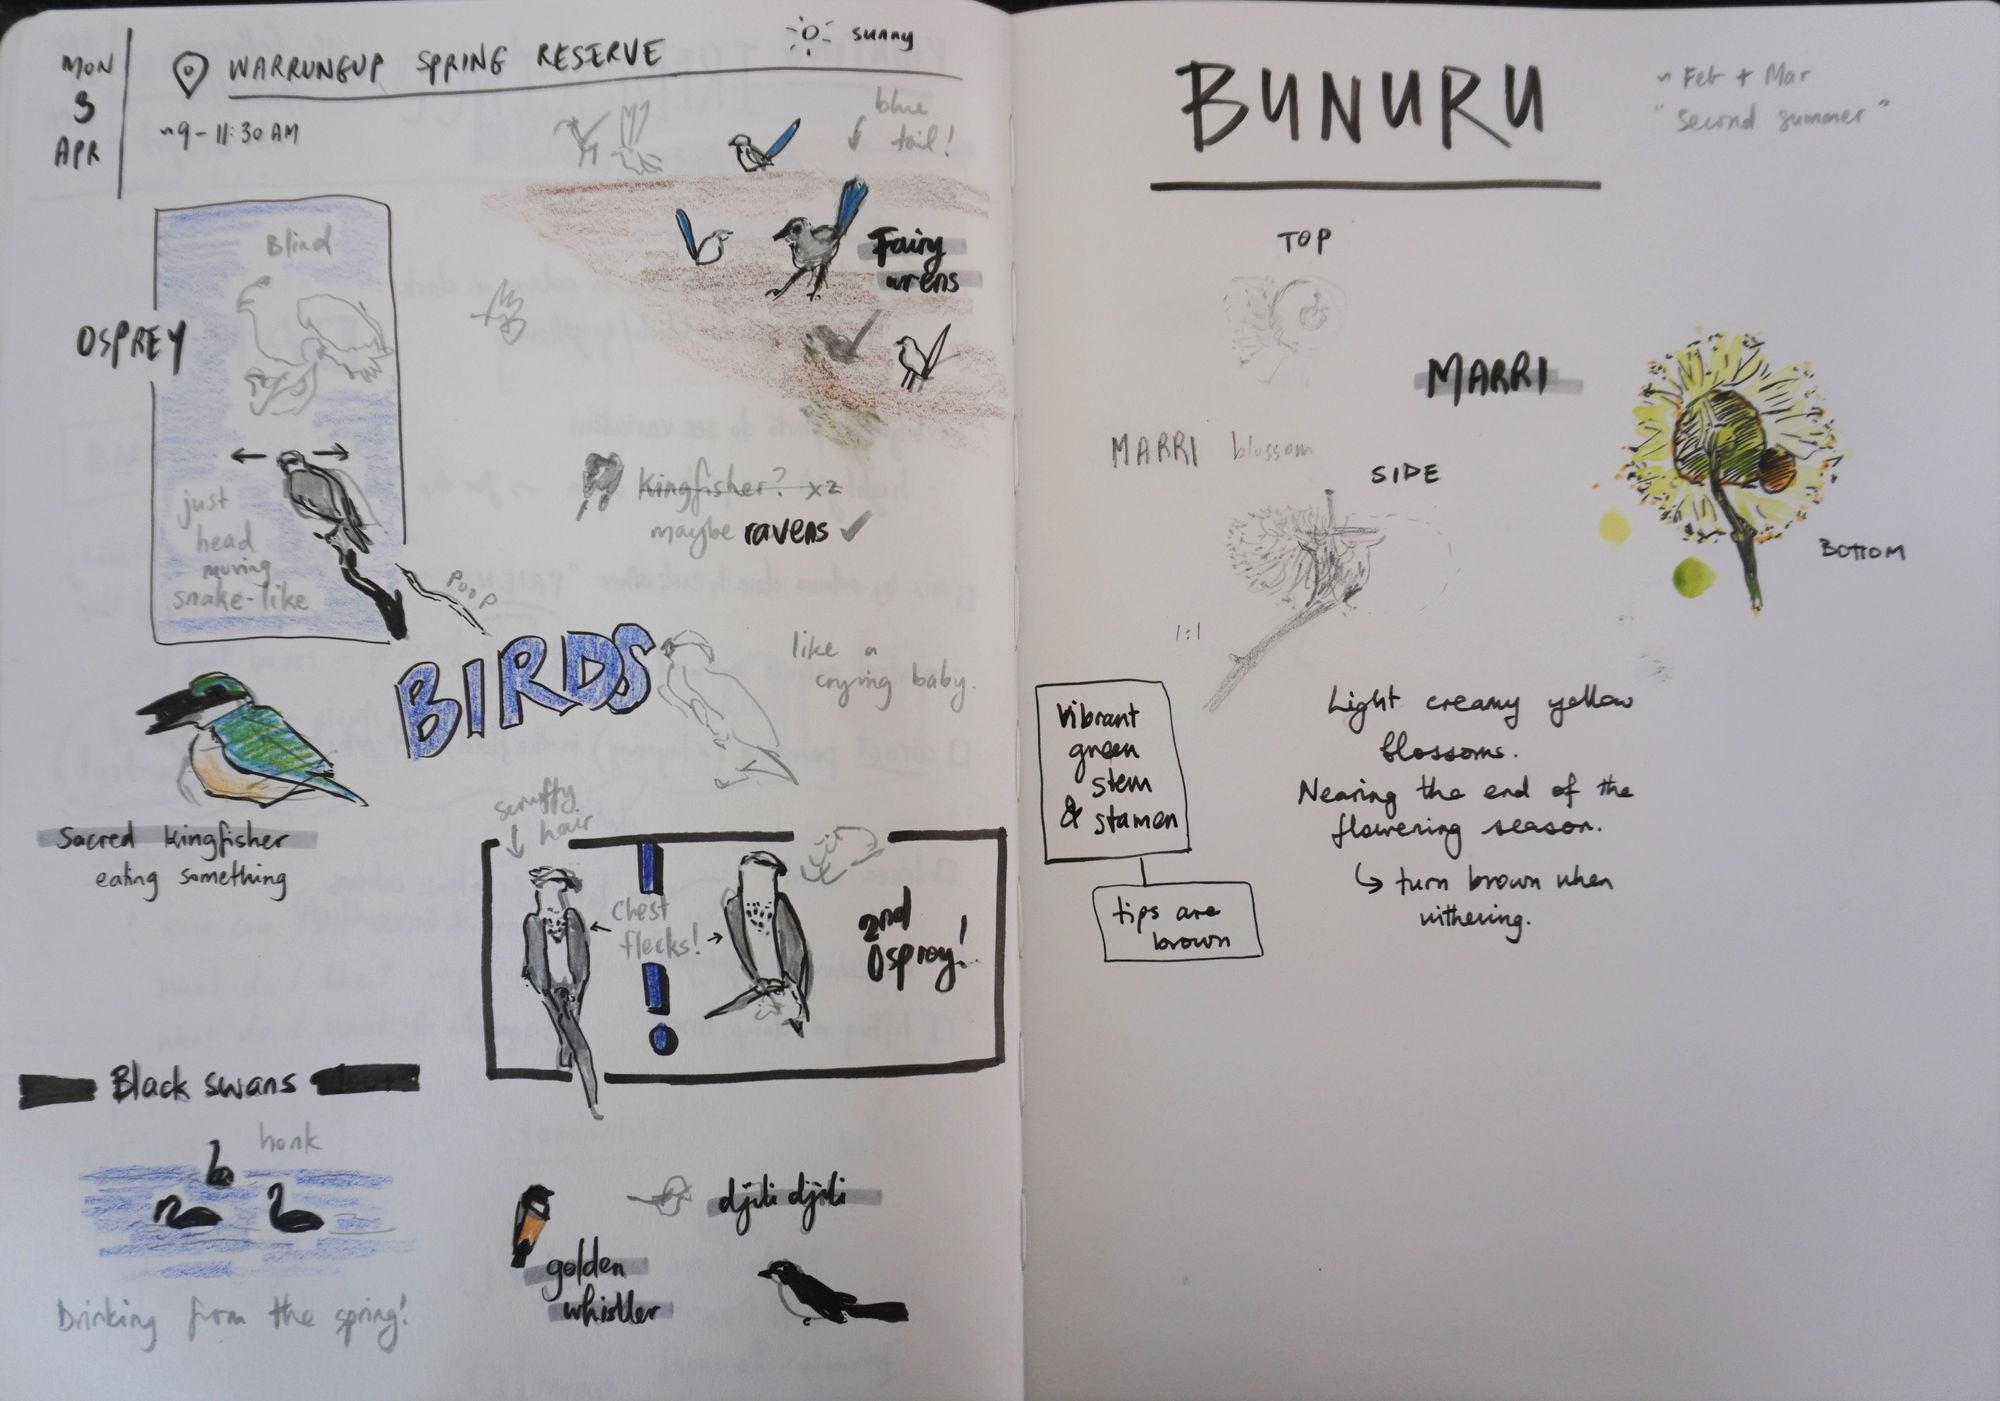 MON
3
APR
WARRUNGUP SPRING RESERVE
sunny
~9-11:30 AM
blue
tail!
Fairy
wrens
Blind
OSPREY
just
head
moving
snake-like
POOP
Kingfisher? x2
maybe ravens ✓
BIRDS
like a
crying baby.
Sacred kingfisher
eating something
scruffy
hair
chest
flecks!
2nd
Osprey!
Black swans
honk
Drinking from the spring!
golden
whistler
djili djili
BUNURU
~ Feb + Mar
"Second summer"
TOP
MARRI
MARRI blossom
SIDE
BOTTOM
1:1
Vibrant
green
stem
& stamen
tips are
brown
Light creamy yellow
blossoms.
Nearing the end of the
flowering season.
↳ turn brown when
withering.